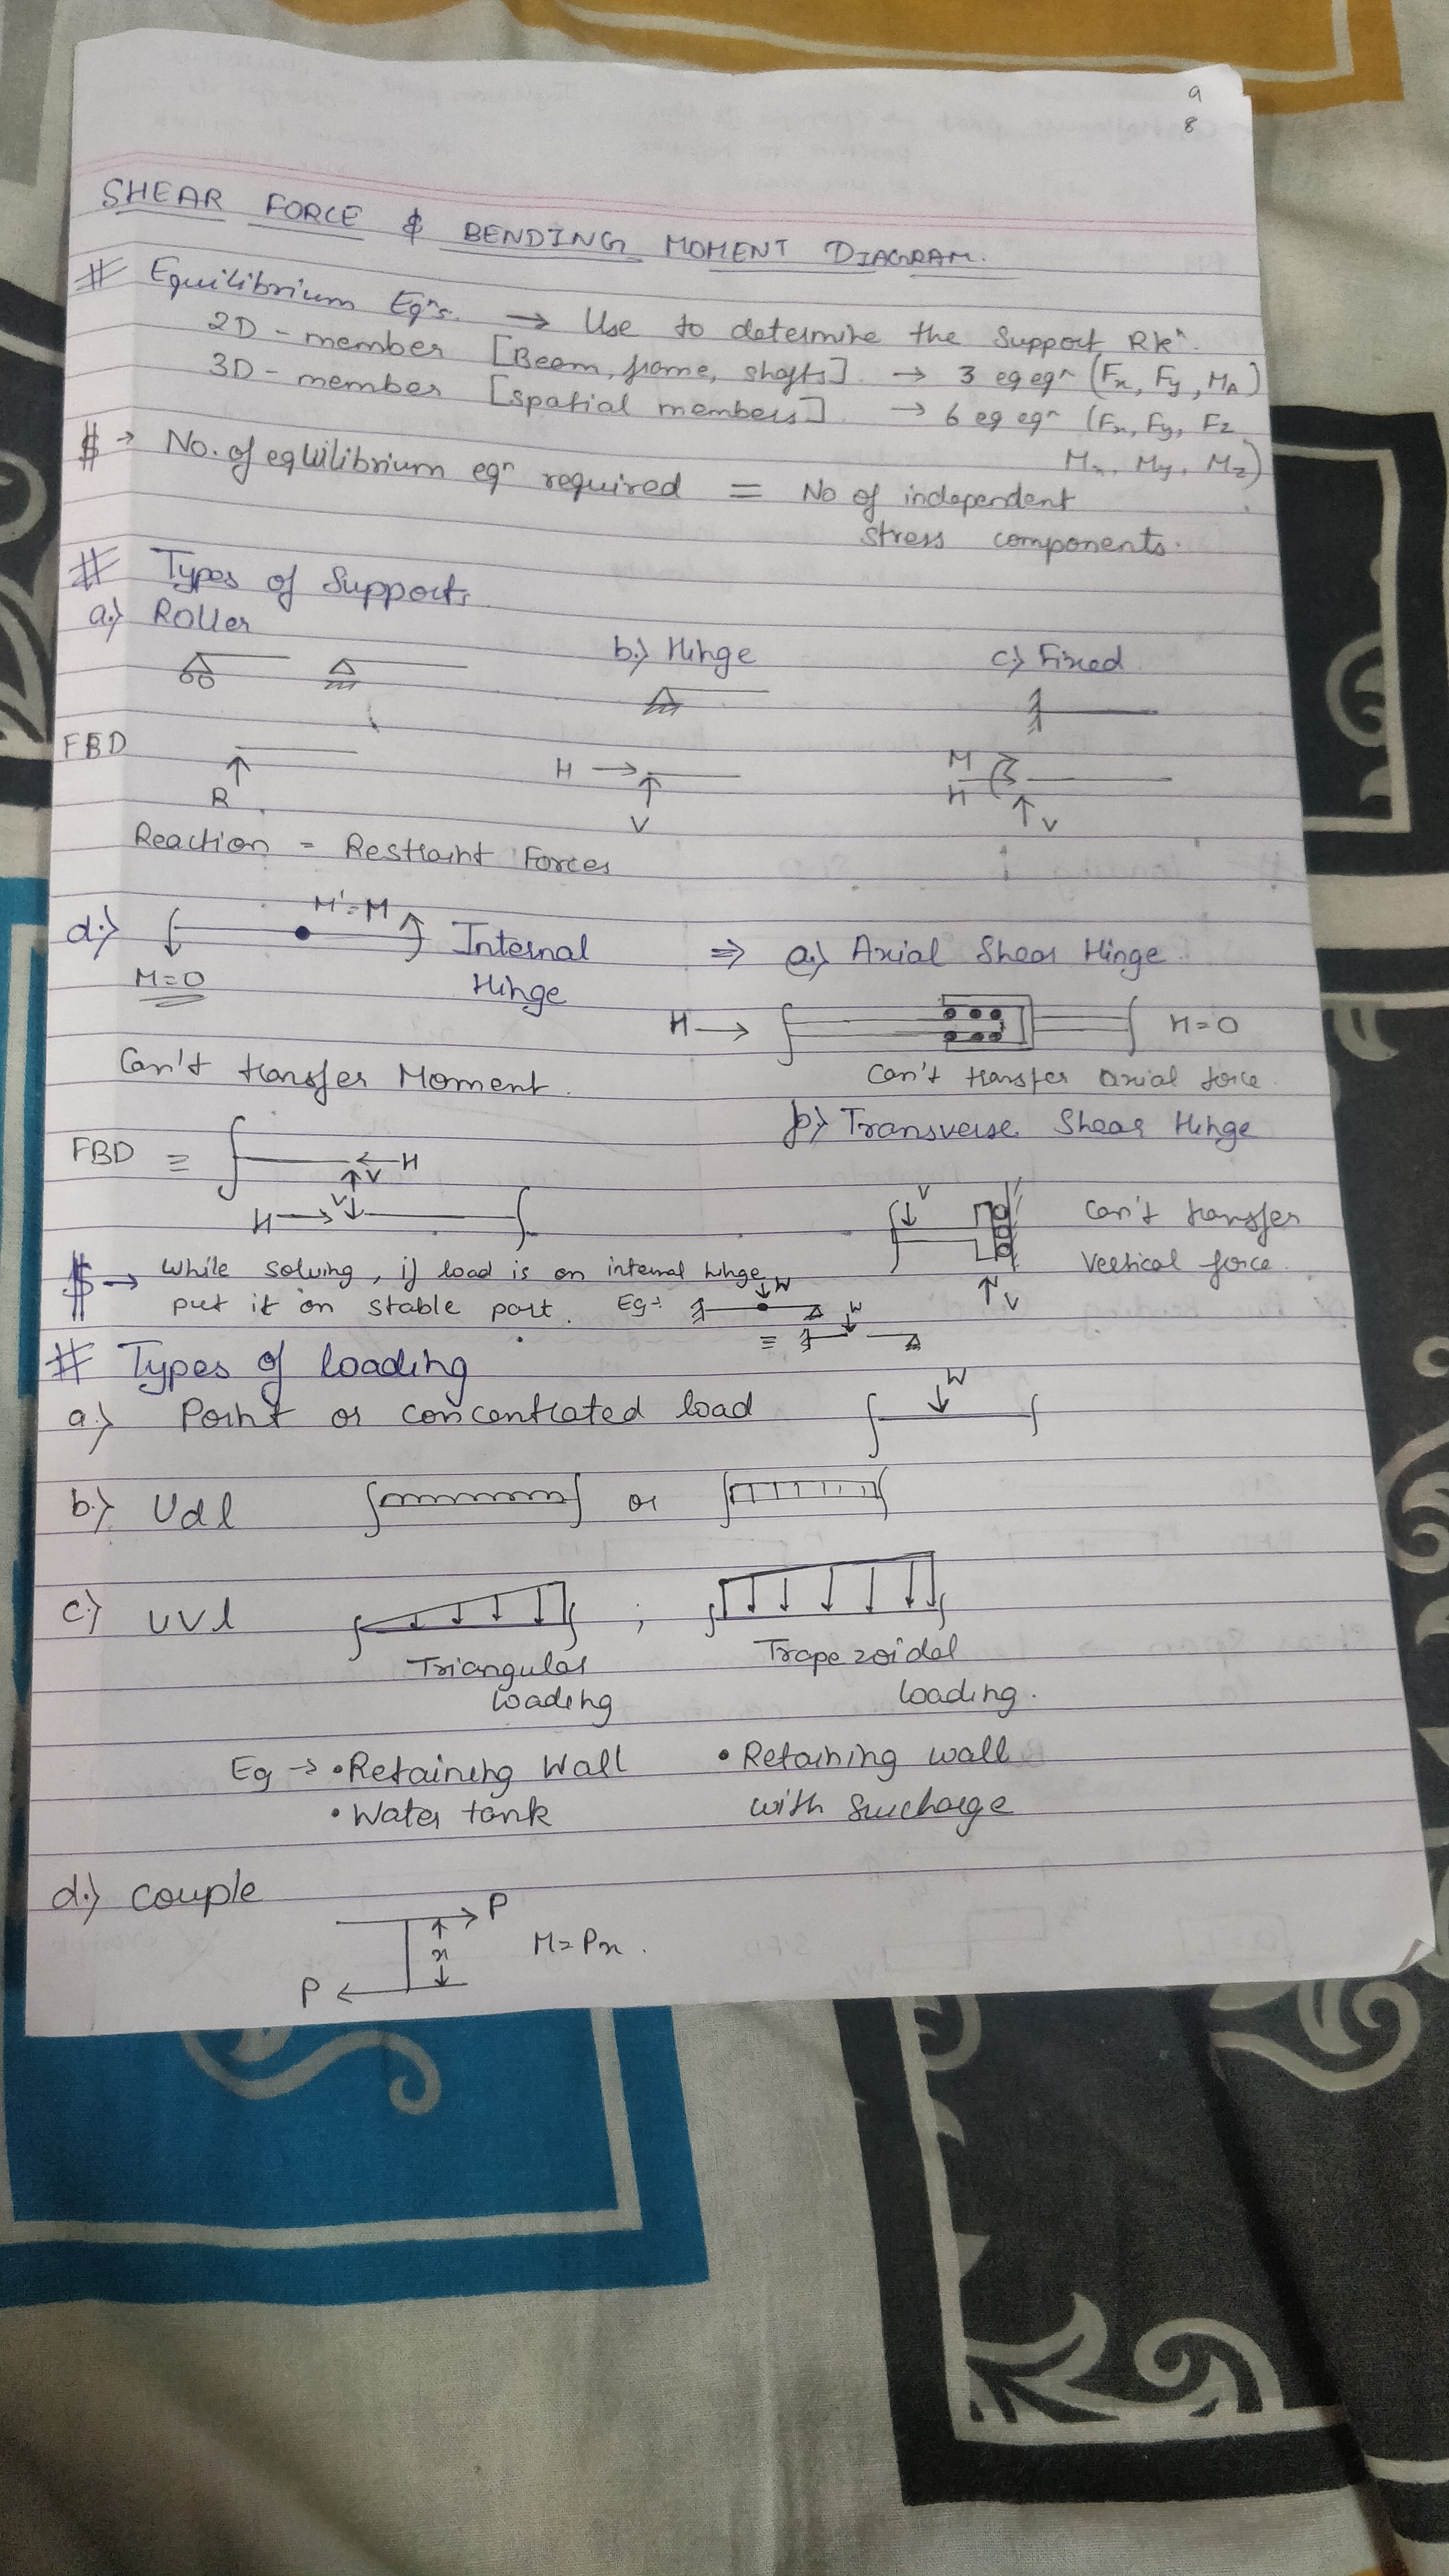 9
8
SHEAR FORCE & BENDING MOMENT DIAGRAM.
# Equilibrium Eqⁿs. → Use to determine the Support Rkⁿ.
2D - member [Beam, frame, shafts] → 3 eq eqⁿ (Fx, Fy, MA)
3D - member [spatial members] → 6 eq eqⁿ (Fx, Fy, Fz
Mx, My, Mz)
$ → No. of equilibrium eqⁿ required = No of independent
stress components.
# Types of Supports
a.) Roller
b.) Hinge
c.) Fixed
FBD
R
H →
V
M
H
V
Reaction = Restraint Forces
d.) M'=M Internal
Hinge
M=0
⇒ a.) Axial Shear Hinge
H → H=0
Can't transfer Moment.
Can't transfer axial force.
b.) Transverse Shear Hinge
FBD ≡ ← H
V
H → V
V
Can't transfer
vertical force.
V
$ → While solving, if load is on internal hinge
put it on stable part. Eg→ W
≡ W
# Types of loading
a.) Point or concentrated load W
b.) Udl or
c.) UVl ;
Triangular
loading
Trapezoidal
loading.
Eg → • Retaining Wall
• Water tank
• Retaining wall
with Surcharge
d.) Couple
P
x
M=Px.
P